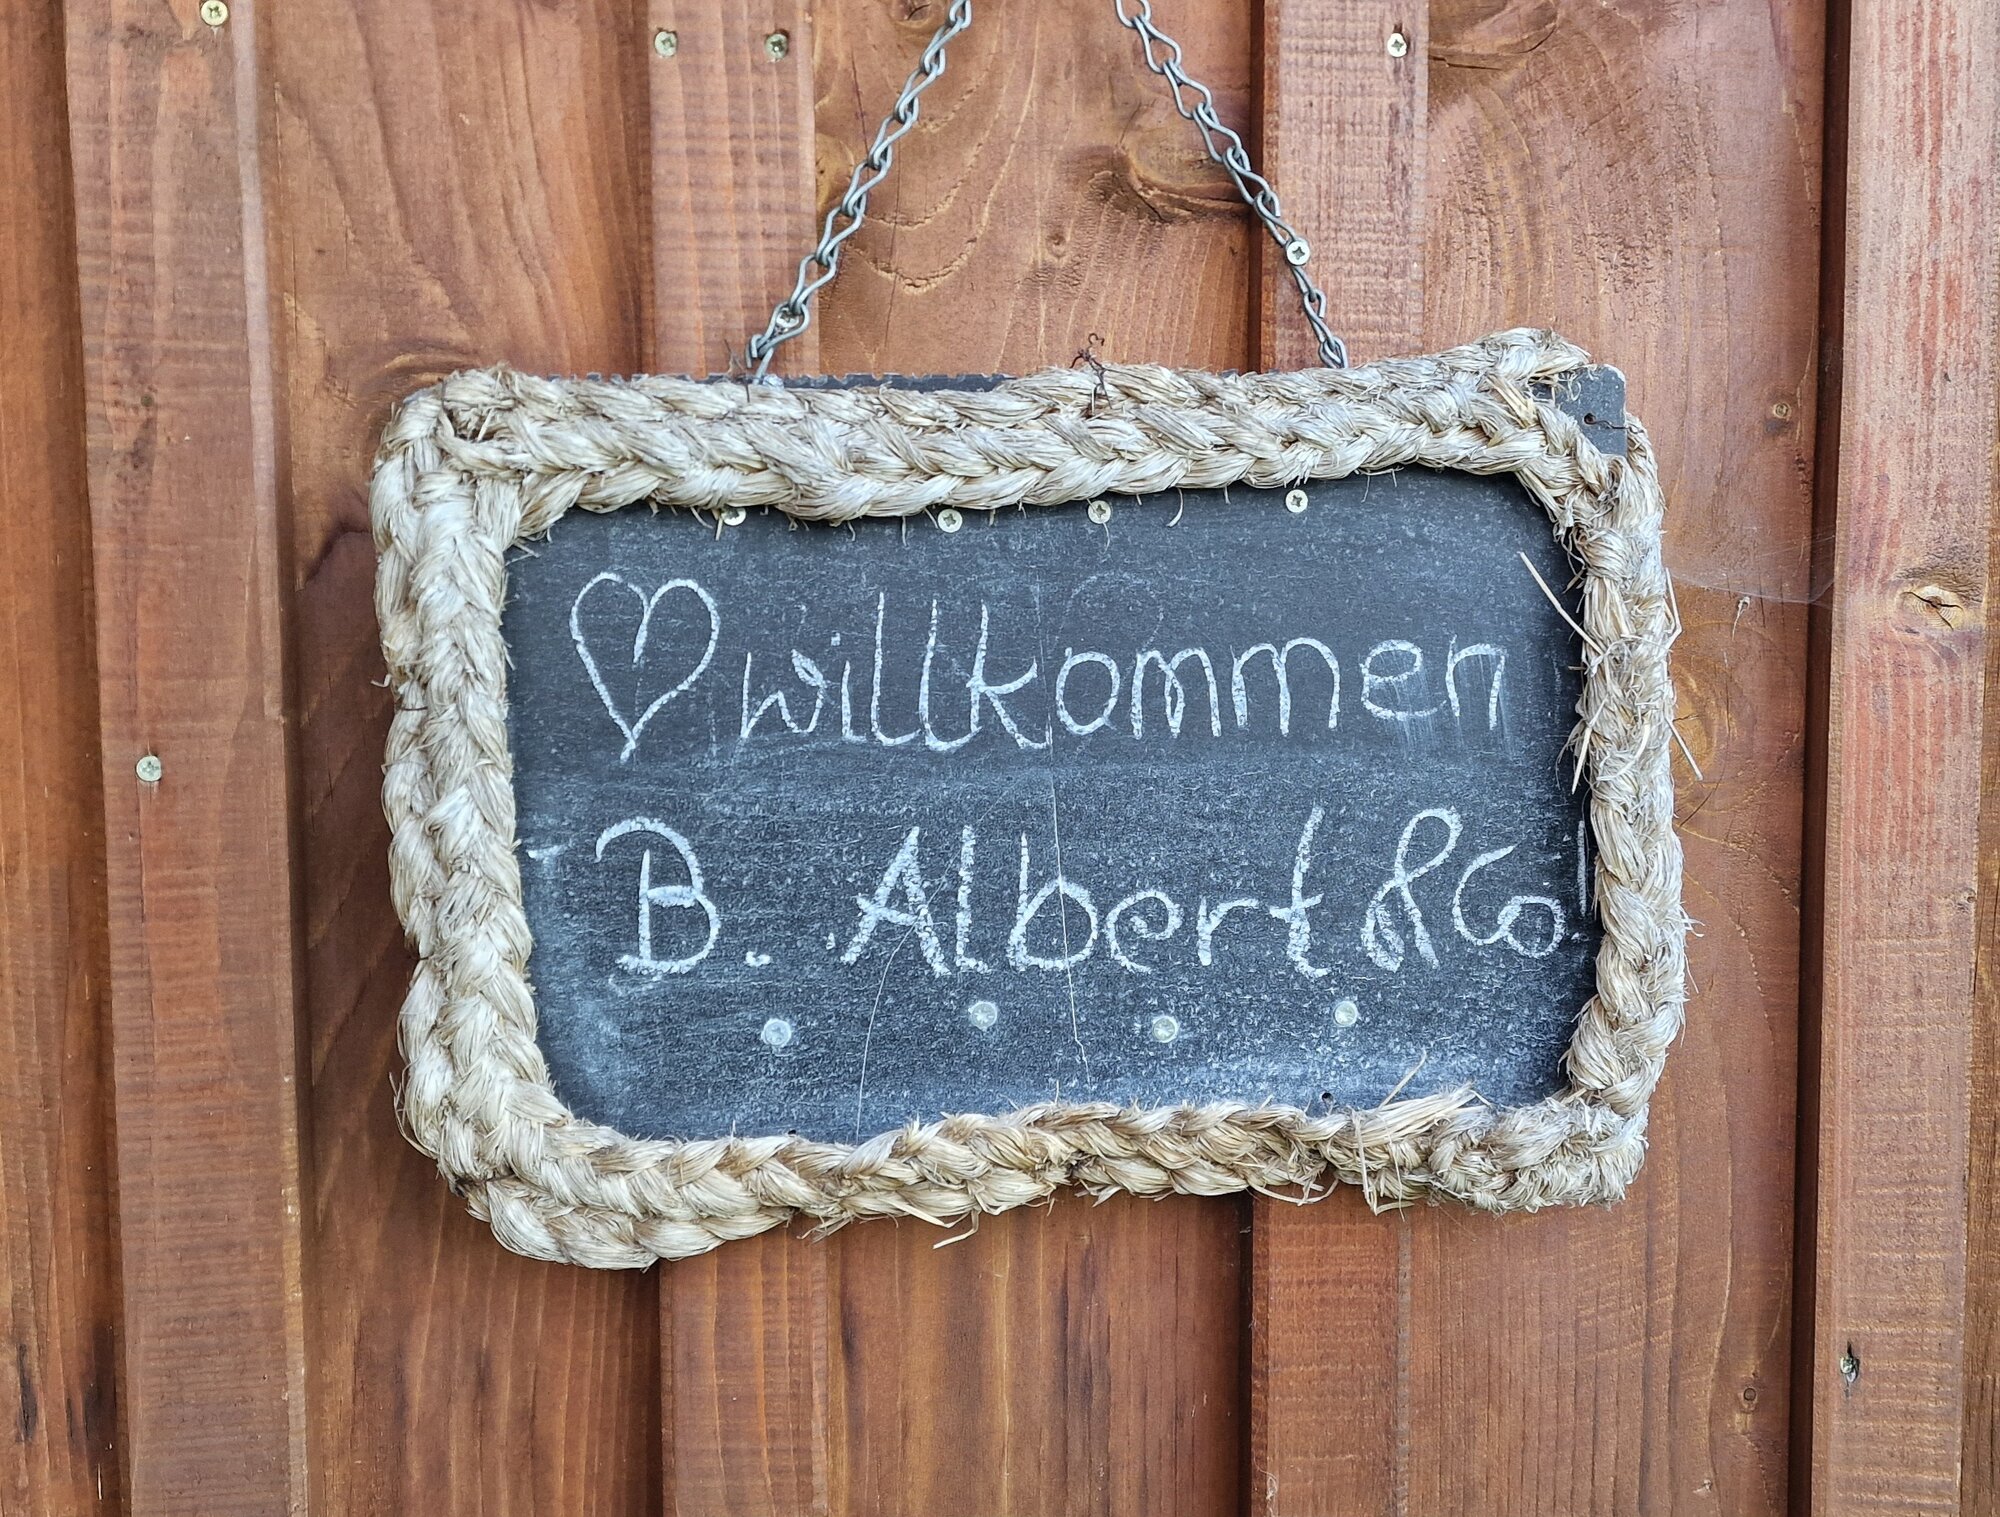 ♡ willkommen
B. Albert & Co.!